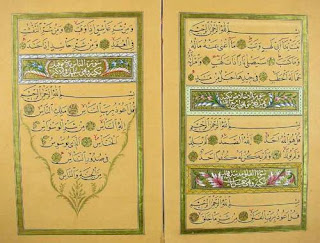 بِسْمِ اللهِ الرَّحْمٰنِ الرَّحِيمِ
تَبَّتْ يَدَا أَبِي لَهَبٍ وَتَبَّ مَا أَغْنَىٰ عَنْهُ مَالُهُ
وَمَا كَسَبَ سَيَصْلَىٰ نَارًا ذَاتَ لَهَبٍ وَامْرَأَتُهُ
حَمَّالَةَ الْحَطَبِ فِي جِيدِهَا حَبْلٌ مِنْ مَسَدٍ
بِسْمِ اللهِ الرَّحْمٰنِ الرَّحِيمِ
قُلْ هُوَ اللهُ أَحَدٌ اللهُ الصَّمَدُ لَمْ يَلِدْ
وَلَمْ يُولَدْ وَلَمْ يَكُنْ لَهُ كُفُوًا أَحَدٌ
بِسْمِ اللهِ الرَّحْمٰنِ الرَّحِيمِ
قُلْ أَعُوذُ بِرَبِّ الْفَلَقِ مِنْ شَرِّ مَا خَلَقَ
وَمِنْ شَرِّ غَاسِقٍ إِذَا وَقَبَ وَمِنْ شَرِّ النَّفَّاثَاتِ
فِي الْعُقَدِ وَمِنْ شَرِّ حَاسِدٍ إِذَا حَسَدَ
بِسْمِ اللهِ الرَّحْمٰنِ الرَّحِيمِ
قُلْ أَعُوذُ بِرَبِّ النَّاسِ مَلِكِ النَّاسِ
إِلٰهِ النَّاسِ مِنْ شَرِّ الْوَسْوَاسِ
الْخَنَّاسِ الَّذِي يُوَسْوِسُ
فِي صُدُورِ النَّاسِ
مِنَ الْجِنَّةِ وَالنَّاسِ